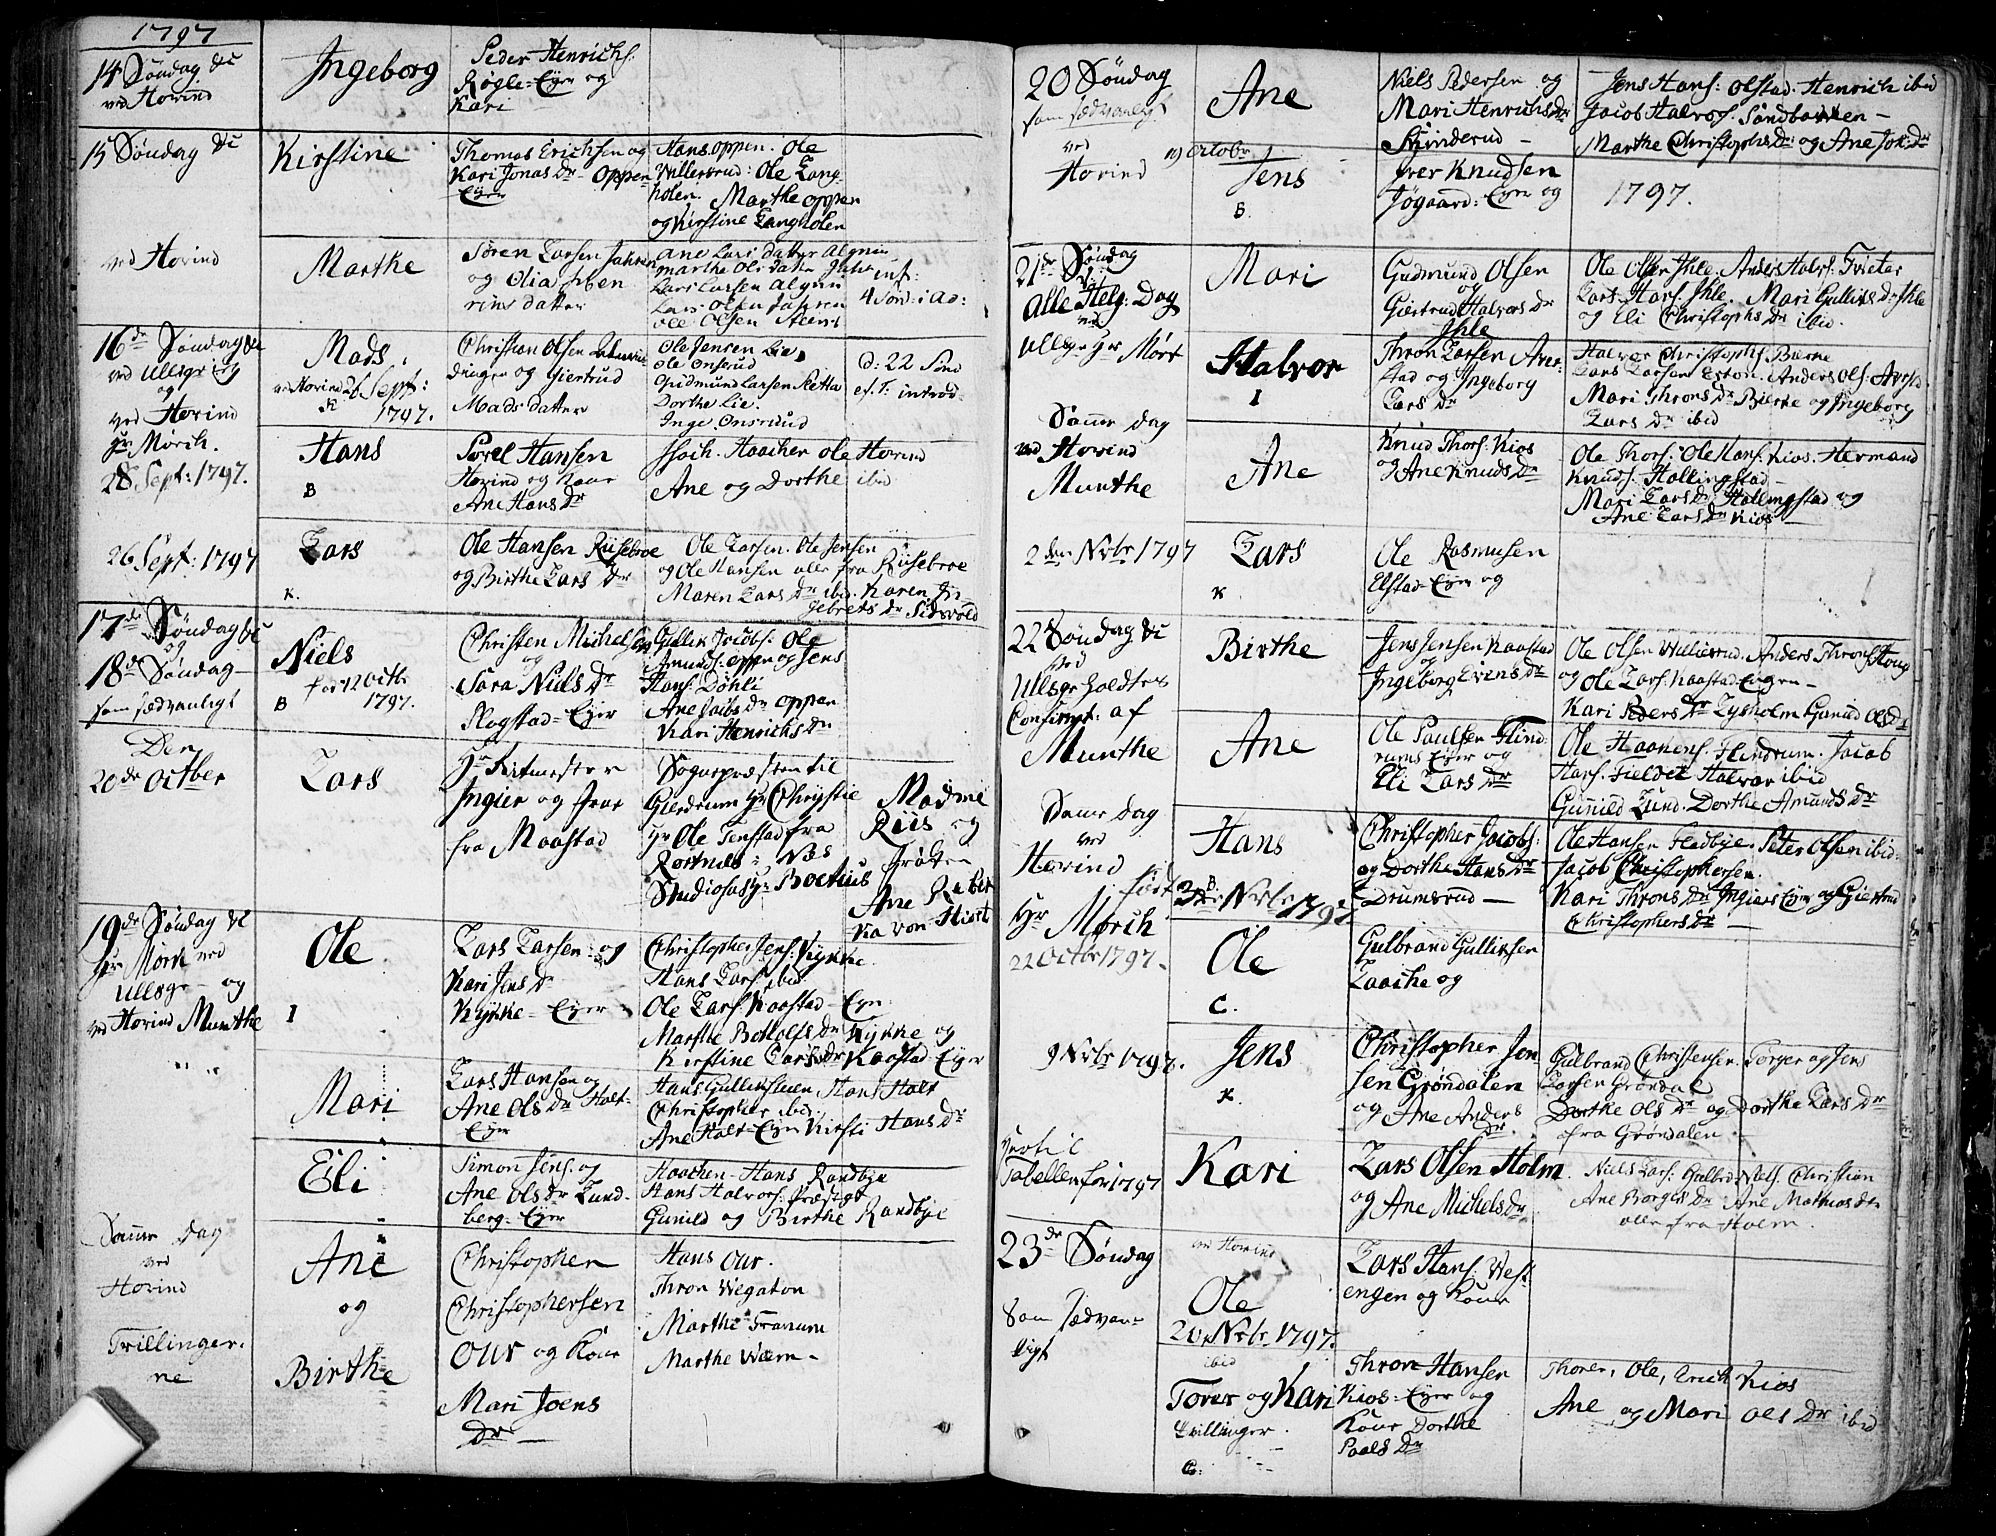 1797
14 Søndag
ved Hovind
Ingeborg
Peder Henrichs:
Røgle-Eyer og
Kari
15 Søndag
Kirstine
Thomas Erichsen og
Kari Jonas Dr Oppen
Eyer
Hans Oppen. Ole
Willersrud: Ole Lang-
holen. Marthe Oppen
og Kirstine Langholen
ved Hovind
Marthe
Søren Larsen Jahren
og Olia Iben
rins datter
Ane Lars datter Algnin
Marthe Ols datter Jahr
Lars Larsen Algnin
Lars Olsen Jahren
Ole Olsen
int:
4 Sønd: i Ad:
16de Søndag
ved Ullsgr
og
ved Hovind
Hr Mørch.
28 Sept: 1797.
Mads.
ved Hovind 26 Sept:
1797.
Christian Olsen
dingen og Giertrud
Mads datter
Ole Jensen Lie
Ole Onsrud
Gudmund Larsen Rætta
Dorthe Lie.
Inge Onsrud
d: 22 Sønd
ef. T: introd-
Hans
B
Povel Hansen
Hovind og Kone
Ane Hans Dr
Hoch. Haachen Ole Hovind
Ane og Dorthe ibid
26 Sept: 1797
Lars
K.
Ole Hansen Riisebroe
og Birthe Lars Dr
Ole Larsen. Ole Jensen
og Ole Hansen alle fra Riisebroe
Maren Lars Dr ibid. Karen In-
gebrets Dr Sidsvold
17de Søndag
og
18de Søndag
som sædvanligt
Niels
for 12 Octbr
1797.
B
Christen Michelsen
og
Sara Niels Dr
Slogstad-Eyer
Gullik Jacobs: Ole
Amunds: Oppen og Jens
Hans: Døhli
Ane Jacobs Dr Oppen
Kari Henrichs Dr
Den
20de Octber
Lars
Hr Ritmester
Ingier og Frue
fra Maastad
Sognepræsten til
Gierdrum Hr Chrystie
Hr Ole Tenstad fra
Rotnes. NB
Studiosus Hr Boetius
Madme
Riis og
Frøken
Ane Reber
kia von Hiort
19de Søndag
Hr Mørch ved
Ullsgr og
ved Hovind Munthe
Ole
I
Lars Larsen og
Kari Jens Dr
Kykke-Eyer
Christopher Jens: Kykke.
Hans Lars: ibid
Ole Lars: Kaastad-Eyn
Marthe Botholfs Dr Kykke og
Kirstine Lars Dr Kaastad-Eyer
Mari
Lars Hansen og
Ane Ols Dr Holt-
Eyer
Hans Gulliksen Hans Holt
Christopher ibid
Ane Holt-Eyer Kirsti Hans Dr
Eli
Simon Jens: og
Ane Ols Dr Lund-
berg-Eyer
Haachen-Hans Randbye
Hans Halvors: Præstgr
Gunild og Birthe Randbye
Samme Dag
ved
Hovind
Trillinger-
ne
Ane
og
Birthe
Christopher
Christophersen
Our og Kone
Mari Joens
Dr
Hans Our.
Thron Wegaton
Marthe Tranum
Marthe Wærn-
20 Søndag
som sædvanligt
ved
Hovind
Ane
Niels Pedersen og
Mari Henrichs Dr
Skinderud
Jens Hans: Olstad. Henrich ibid
Jacob Halvors: Søndbakken-
Marthe Christophs Dr og Ane Jok: Dr
19 Octobr
Jens
B.
Iver Knudsen
Jøgaard-Eyer og
1797.
21de Søndag
Alle Helg: Dag
ved
Ullsgr Hr Mørk
Mari
Gudmund Olsen
og
Giertrud Halvors Dr
Ihle
Ole Olsen Ihle. Anders Halvs: Tvieter
Lars Hans: Ihle. Mari Gulliks Dr Ihle
og Eli Christophs Dr ibid.
Halvor
I
Thron Larsen Aver-
stad og Ingeborg
Lars Dr
Halvor Christophs: Bierke
Lars Larsen Eston. Anders Ols: Averstad
Mari Throns Dr Bierke og Ingeborg
Lars Dr ibid
Samme Dag
ved Hovind
Munthe
Ane
Knud Thors: Kios
og Ane Knuds Dr
Ole Thors: Ole Hans: Kios. Hermand
Knuds: Hollingstad-
Mari Lars Dr Hollingstad og
Ane Lars Dr Kios
2den Nvbr 1797
Lars
K
Ole Rasmusen
Elstad-Eyer og
22 Søndag
ved
Ullsgr holdtes
Confirmt: af
Munthe
Birthe
Jens Jensen Kaastad
og
Ingeborg Evens Dr
Ole Olsen Willersrud. Anders Throns: Houg
og Ole Lars: Kaastad-Eygen-
Kari Peders Dr Lysholm Gunild Ols Dr
Ane
Ole Paulsen Flind-
rums Eyer og
Eli Lars Dr
Ole Haanens: Flindrum. Jacob
Hans: Fieldet Halvor ibid
Gunild Lund. Dorthe Amunds Dr
Samme Dag
ved
Hovind
Hr Mørch
22 Octbr 1797.
Hans
B.
født
3de Nvbr 1797
Christopher Jacobs:
og Dorthe Hans Dr
Drumsrud-
Ole Hansen Fladbye. Peter Olsen ibid.
Jacob Christophersen.
Kari Throns Dr Ingiers Eyer og Giertrud
Christophers Dr
Ole
C.
Gulbrand Gulliksen
Laache og
9 Nvbr 1797.
Jens
K.
Christopher Jen
sen Grøndalen
og Ane Anders
Dr
Gulbrand Christensen Torger og Jens
Larsen Grøndal
Dorthe Ols Dr og Dorthe Lars Dr
fra Grøndalen
Hertil
Tabellen for 1797
Kari
Lars Olsen Holm.
og Ane Michels Dr
Niels Lars: Gulbr: Niels: Christian
Ane Borges Dr Ane Mathias Dr
alle fra Holm.
23de Søndag
som sædvan-
ligt
ved Hovind
Ole
20 Nvbr 1797.
Lars Hans: Vest-
engen og Kone
ibid
Torer og Kari
Tvillinger.
C:
Thron Hansen
Kios-Eyer og
Kone Dorthe
Poels Dr
Thorer, Ole, Erich Kios
Ane og Mari Ols Dr ibid